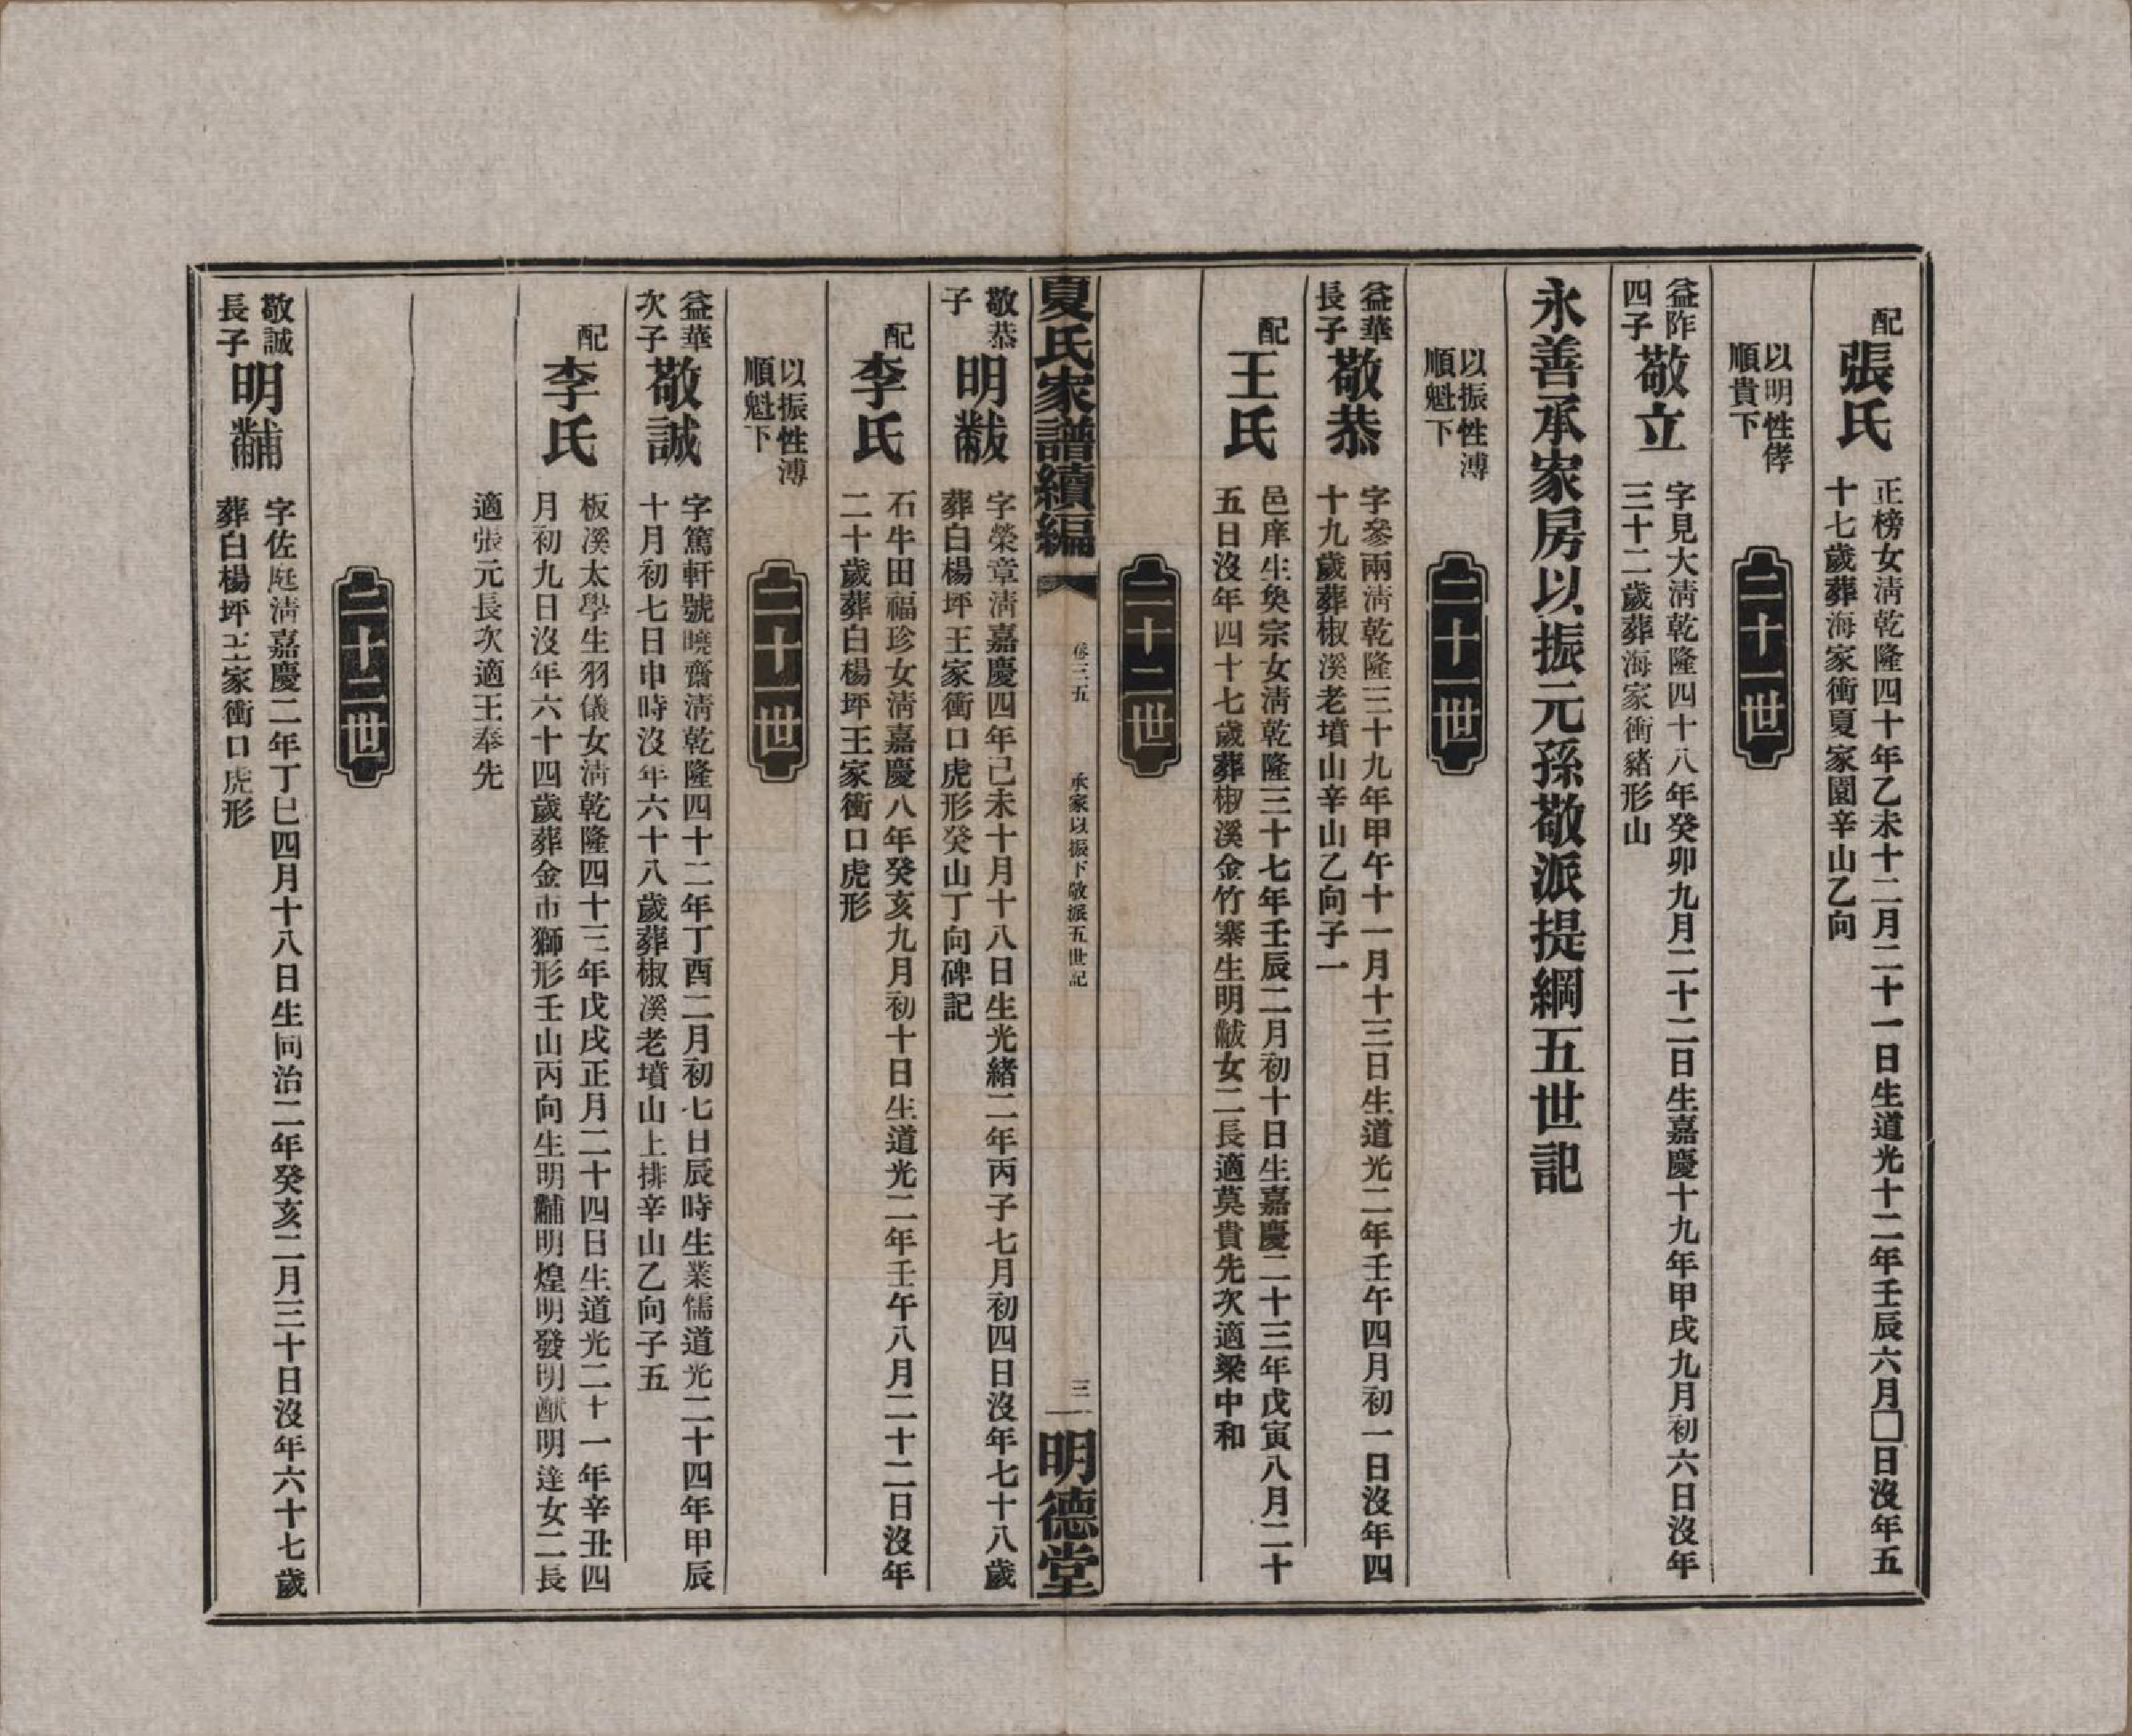 配
張氏
正榜女淸乾隆四十年乙未十二月二十一日生道光十二年壬辰六月□日沒年五
十七歲葬海家衝夏家園辛山乙向
以明性侾
順貴下
二十一世
益阼
四子
敬立
字見大淸乾隆四十八年癸卯九月二十二日生嘉慶十九年甲戌九月初六日沒年
三十二歲葬海家衝豬形山
永善承家房以振元孫敬派提綱五世記
以振性溥
順魁下
二十一世
益華
長子
敬恭
字參兩淸乾隆三十九年甲午十一月十三日生道光二年壬午四月初一日沒年四
十九歲葬椒溪老墳山辛山乙向子一
配
王氏
邑庠生奐宗女淸乾隆三十七年壬辰二月初十日生嘉慶二十三年戊寅八月二十
五日沒年四十七歲葬椒溪金竹寨生明黻女二長適莫貴先次適梁中和
二十二世
夏氏家譜續編
卷三五
承家以振下敬派五世記
三一
明德堂
敬恭
子
明黻
字榮章淸嘉慶四年己未十月十八日生光緒二年丙子七月初四日沒年七十八歲
葬白楊坪王家衝口虎形癸山丁向碑記
配
李氏
石牛田福珍女淸嘉慶八年癸亥九月初十日生道光二年壬午八月二十二日沒年
二十歲葬白楊坪王家衝口虎形
以振性溥
順魁下
二十一世
益華
次子
敬誠
字篤軒號曉齋淸乾隆四十二年丁酉二月初七日辰時生業儒道光二十四年甲辰
十月初七日申時沒年六十八歲葬椒溪老墳山上排辛山乙向子五
配
李氏
板溪太學生羽儀女淸乾隆四十三年戊戌正月二十四日生道光二十一年辛丑四
月初九日沒年六十四歲葬金市獅形壬山丙向生明黼明煌明發明猷明達女二長
適張元長次適王奉先
二十二世
敬誠
長子
明黼
字佐庭淸嘉慶二年丁巳四月十八日生同治二年癸亥二月三十日沒年六十七歲
葬白楊坪王家衝口虎形